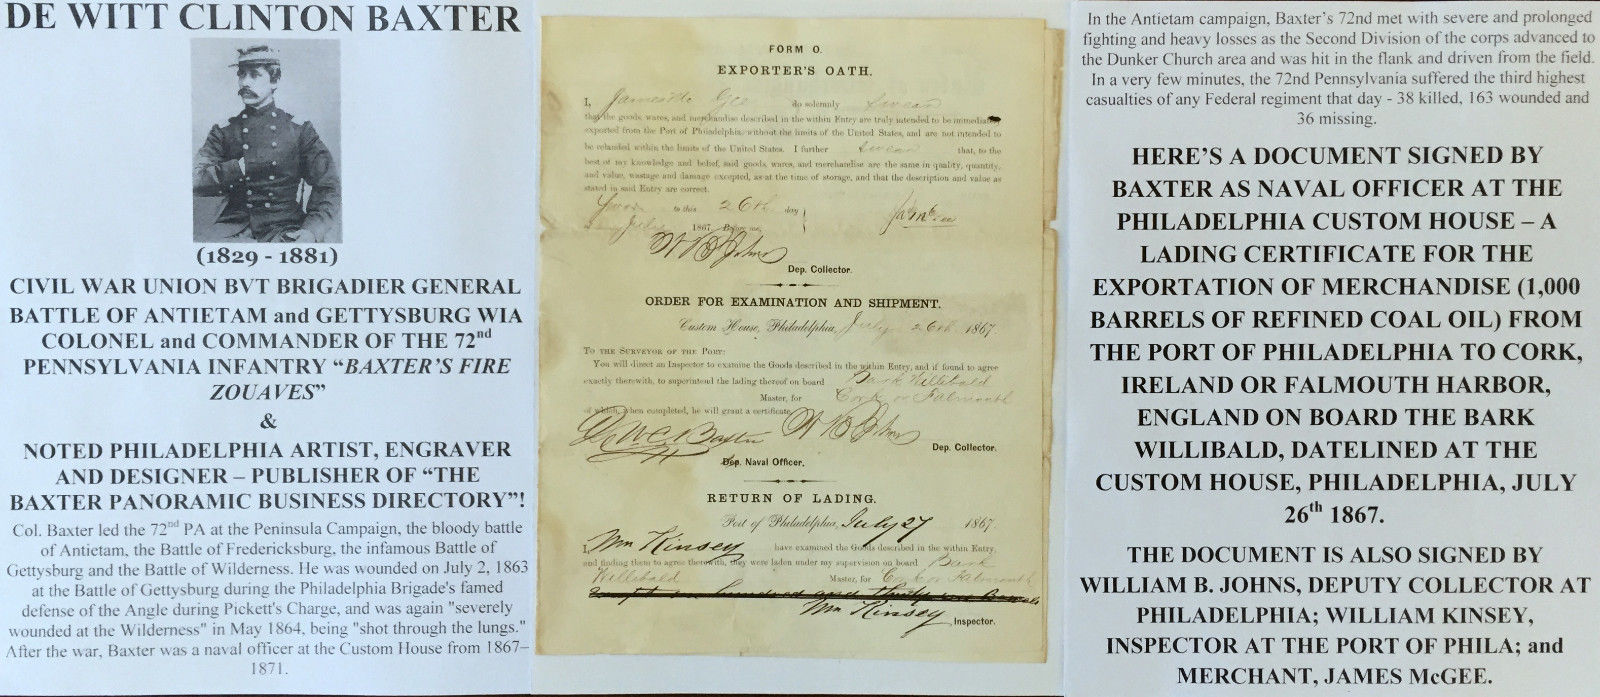 DE WITT CLINTON BAXTER
(1829 - 1881)
CIVIL WAR UNION BVT BRIGADIER GENERAL
BATTLE OF ANTIETAM and GETTYSBURG WIA
COLONEL and COMMANDER OF THE 72nd
PENNSYLVANIA INFANTRY “BAXTER’S FIRE
ZOUAVES”
&
NOTED PHILADELPHIA ARTIST, ENGRAVER
AND DESIGNER – PUBLISHER OF “THE
BAXTER PANORAMIC BUSINESS DIRECTORY”!
Col. Baxter led the 72nd PA at the Peninsula Campaign, the bloody battle
of Antietam, the Battle of Fredericksburg, the infamous Battle of
Gettysburg and the Battle of Wilderness. He was wounded on July 2, 1863
at the Battle of Gettysburg during the Philadelphia Brigade's famed
defense of the Angle during Pickett's Charge, and was again "severely
wounded at the Wilderness" in May 1864, being "shot through the lungs."
After the war, Baxter was a naval officer at the Custom House from 1867–
1871.
FORM O.
EXPORTER'S OATH.
I, James Mc Gee do solemnly swear
that the goods, wares, and merchandise described in the within Entry are truly intended to be immediately
exported from the Port of Philadelphia, without the limits of the United States, and are not intended to
be relanded within the limits of the United States. I further swear that, to the
best of my knowledge and belief, said goods, wares, and merchandise are the same in quality, quantity,
and value, wastage and damage excepted, as at the time of storage, and that the description and value as
stated in said Entry are correct.
Sworn to this 26th day
of July 1867. Before me, Jas McGee
W B Johns
Dep. Collector.
ORDER FOR EXAMINATION AND SHIPMENT.
Custom House, Philadelphia, July 26th 1867.
TO THE SURVEYOR OF THE PORT:
You will direct an Inspector to examine the Goods described in the within Entry, and if found to agree
exactly therewith, to superintend the lading thereof on board Bark Willibald
Master, for Cork or Falmouth
of which, when completed, he will grant a certificate.
De W. C. Baxter W B Johns
Dep. Collector.
Dep. Naval Officer.
RETURN OF LADING.
Port of Philadelphia, July 27 1867.
I, Wm Kinsey have examined the Goods described in the within Entry,
and finding them to agree therewith, they were laden under my supervision on board Bark
Willibald Master, for Cork or Falmouth
Wm Kinsey
Inspector.
In the Antietam campaign, Baxter’s 72nd met with severe and prolonged
fighting and heavy losses as the Second Division of the corps advanced to
the Dunker Church area and was hit in the flank and driven from the field.
In a very few minutes, the 72nd Pennsylvania suffered the third highest
casualties of any Federal regiment that day - 38 killed, 163 wounded and
36 missing.
HERE’S A DOCUMENT SIGNED BY
BAXTER AS NAVAL OFFICER AT THE
PHILADELPHIA CUSTOM HOUSE – A
LADING CERTIFICATE FOR THE
EXPORTATION OF MERCHANDISE (1,000
BARRELS OF REFINED COAL OIL) FROM
THE PORT OF PHILADELPHIA TO CORK,
IRELAND OR FALMOUTH HARBOR,
ENGLAND ON BOARD THE BARK
WILLIBALD, DATELINED AT THE
CUSTOM HOUSE, PHILADELPHIA, JULY
26th 1867.
THE DOCUMENT IS ALSO SIGNED BY
WILLIAM B. JOHNS, DEPUTY COLLECTOR AT
PHILADELPHIA; WILLIAM KINSEY,
INSPECTOR AT THE PORT OF PHILA; and
MERCHANT, JAMES McGEE.